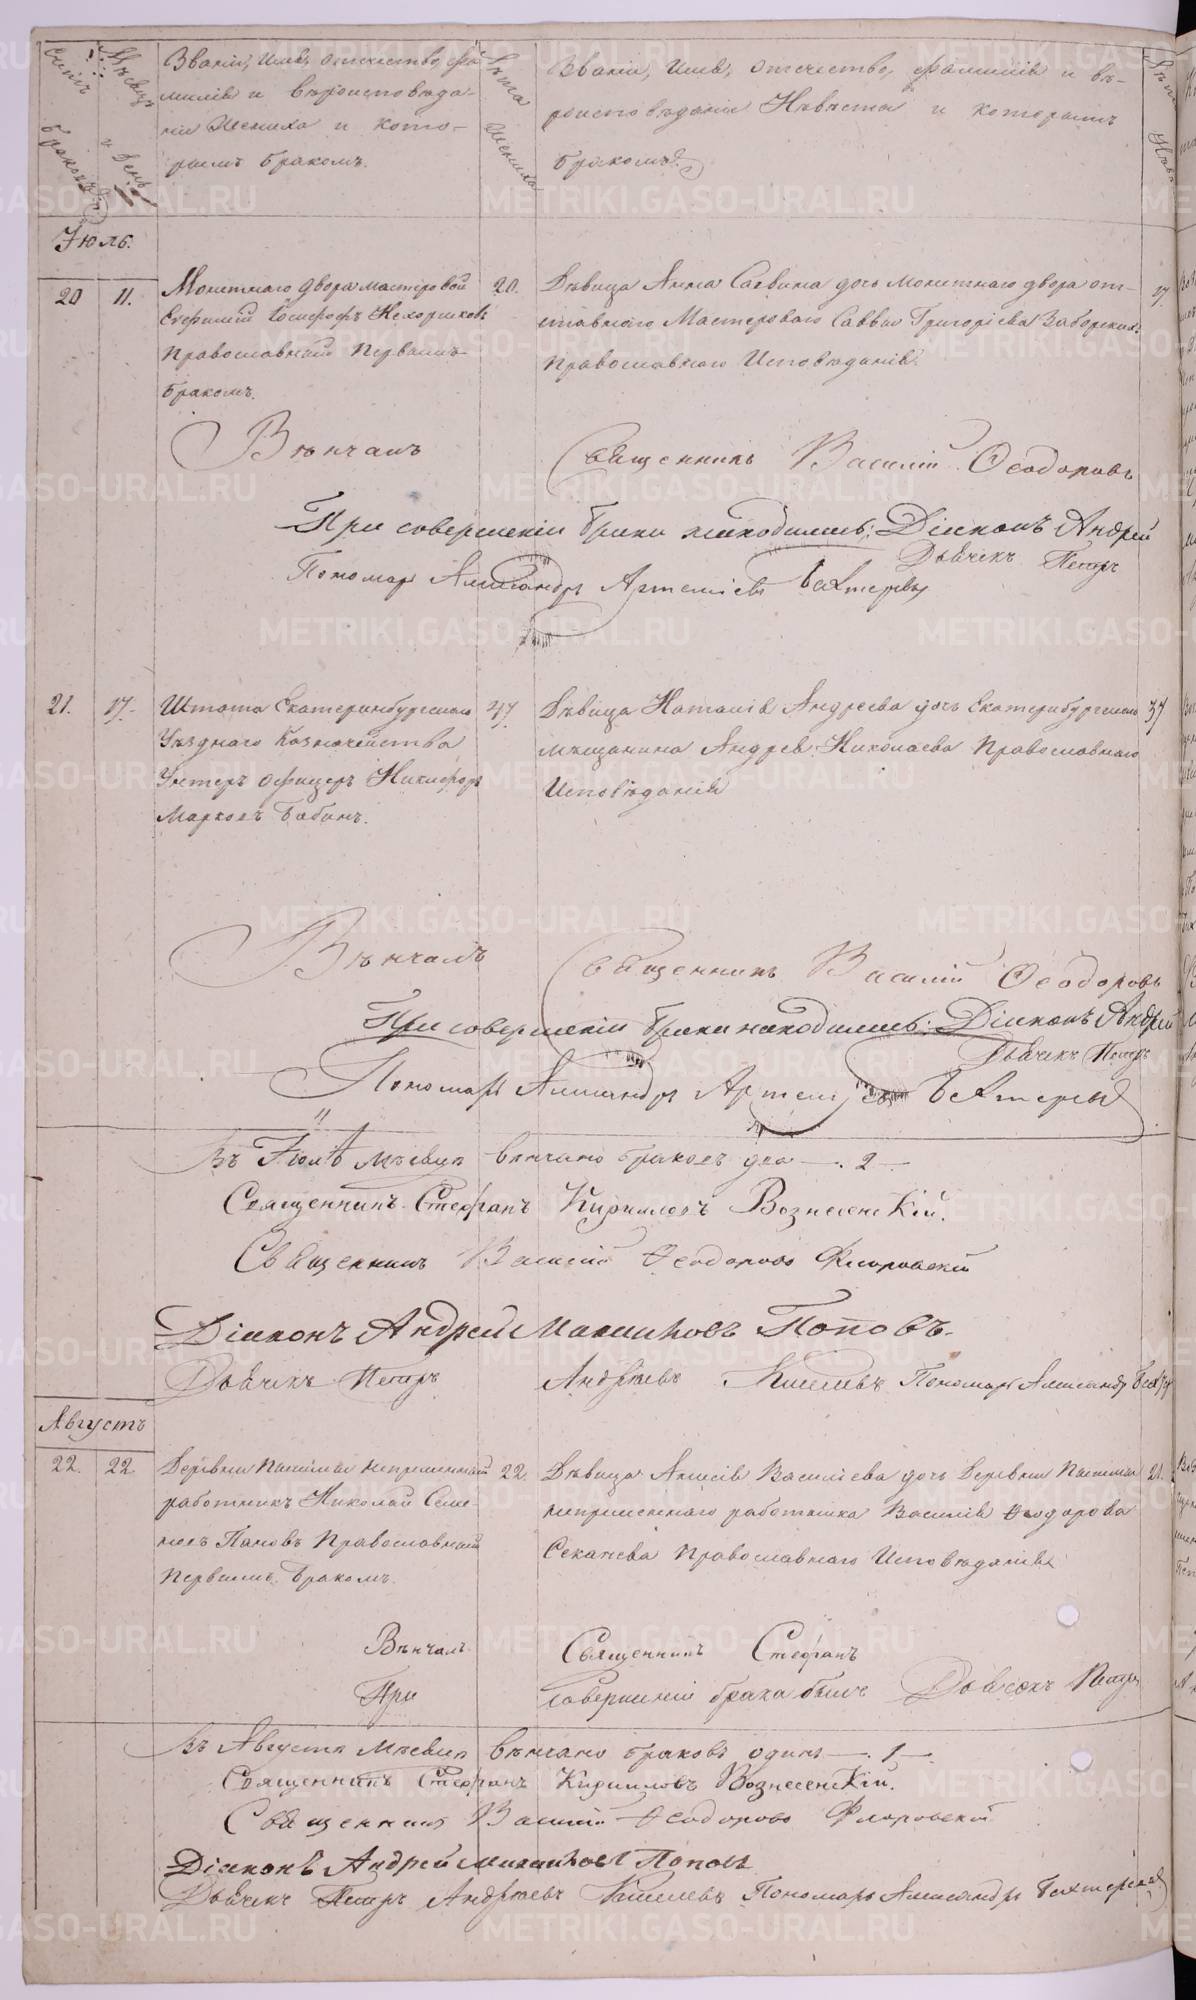 Счетъ браковъ
Мѣсяцъ и день
Званіе, имя, отечество, фа-
милія и вѣроисповѣда-
ніе Жениха и кото-
рымъ бракомъ.
Лѣта Жениха
Званіе, имя, отечество, фамилія и вѣ-
роисповѣданіе Невѣсты и которымъ
бракомъ.
Лѣта Невѣ
Іюль.
20 11.
Монетнаго двора мастеровой
Православный Первымъ
бракомъ.
20.
Дѣвица Анна Саввина дочь Монетнаго двора от-
ставнаго Мастероваго Саввы Григоріева Заборскихъ
Православнаго Исповѣданія.
17
Вѣнчалъ Священникъ Василій Ѳеодоровъ
При совершеніи брака находились: Діаконъ Андрей
Дьячекъ Петръ
Пономарь Александръ Артеміевъ Бехтеревъ
21. 17.
Штата Екатеринбургскаго
Уѣзднаго Казначейства
Унтеръ офицеръ Никифоръ
Марковъ Бабинъ.
47
Дѣвица Наталія Андреева дочь Екатеринбургскаго
мѣщанина Андрея Николаева Православнаго
Исповѣданія
37
Вѣнчалъ Священникъ Василій Ѳеодоровъ
При совершеніи брака находились: Діаконъ Андрей
Дьячекъ Петръ
Пономарь Александръ Артеміевъ Бехтеревъ
Въ Іюлѣ мѣсяцѣ вѣнчано браковъ два —. 2 —
Священникъ Стефанъ Кирилловъ Вознесенскій.
Священникъ Василій Ѳеодоровъ Флоровскій
Діаконъ Андрей Максимовъ Поповъ.
Дьячекъ Петръ Андреевъ Киселевъ Пономарь Александръ Бехтер
Августъ
22. 22
Деревни работникъ Николай Семе-
новъ Пановъ Православный
Первымъ бракомъ.
22.
Дѣвица Анисія Василіева дочь Деревни
непременнаго работника Василія Ѳеодорова
Секачева Православнаго Исповѣданія
21.
Вѣнчалъ Священникъ Стефанъ
При совершеніи брака былъ Дьячекъ Петръ
Въ Августѣ мѣсяцѣ вѣнчано браковъ одинъ —. 1 —.
Священникъ Стефанъ Кирилловъ Вознесенскій.
Священникъ Василій Ѳеодоровъ Флоровскій
Діаконъ Андрей Максимовъ Поповъ
Дьячекъ Петръ Андреевъ Киселевъ Пономарь Александръ Бехтеревъ
METRIKI.GASO-URAL.RU